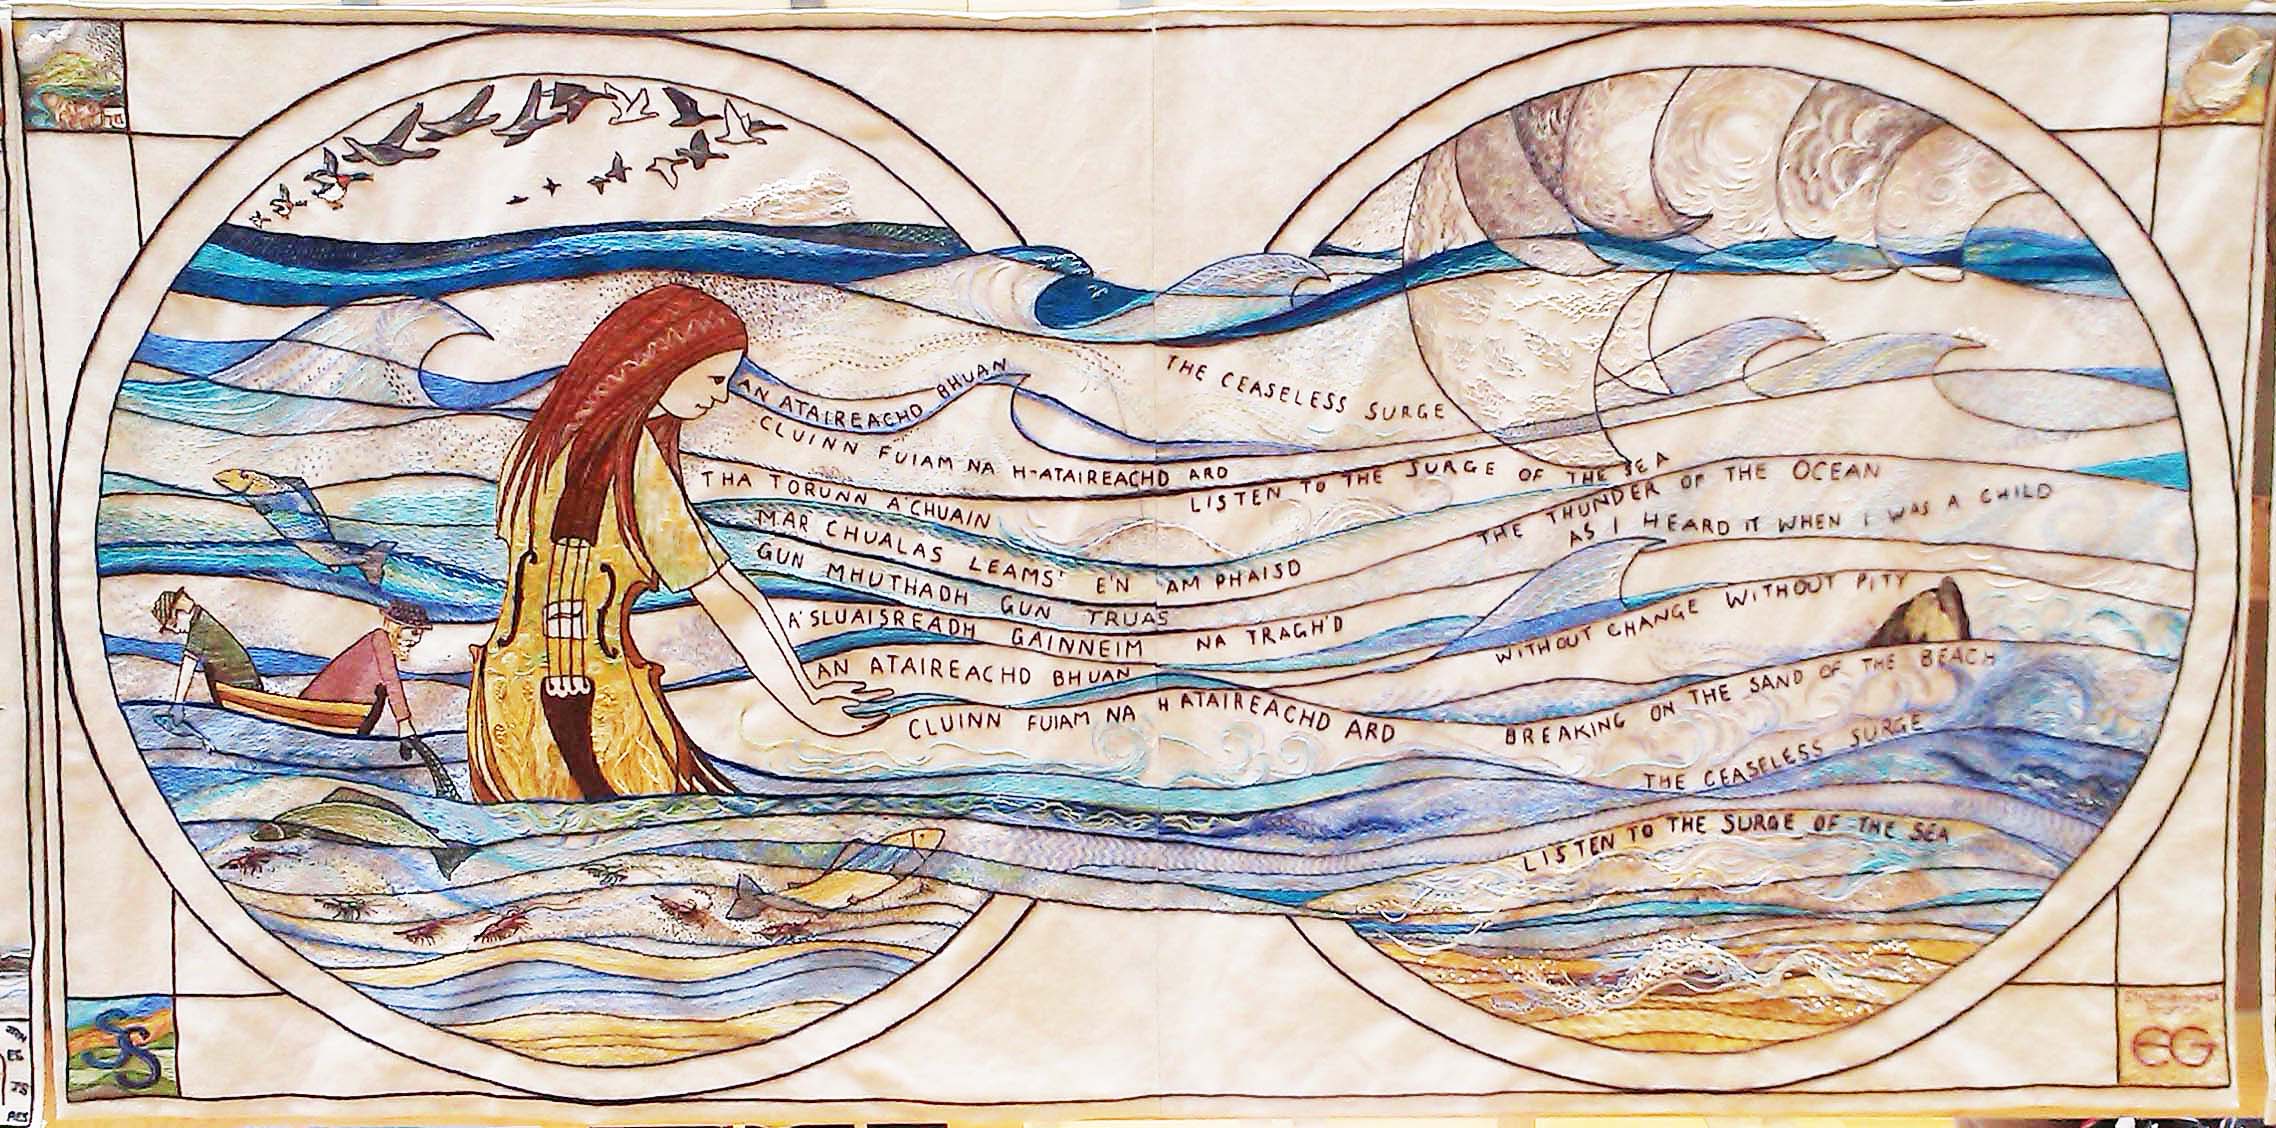 AN ATAIREACHD BHUAN
CLUINN FUIAM NA H-ATAIREACHD ARD
THA TORUNN A'CHUAIN
MAR CHUALAS LEAMS' E'N AM PHAISD
GUN MHUTHADH GUN TRUAS
A'SLUAISREADH GAINNEIM NA TRAGH'D
AN ATAIREACHD BHUAN
CLUINN FUIAM NA H ATAIREACHD ARD
THE CEASELESS SURGE
LISTEN TO THE SURGE OF THE SEA
THE THUNDER OF THE OCEAN
AS I HEARD IT WHEN I WAS A CHILD
WITHOUT CHANGE WITHOUT PITY
BREAKING ON THE SAND OF THE BEACH
THE CEASELESS SURGE
LISTEN TO THE SURGE OF THE SEA
SS
EG
EG
JS